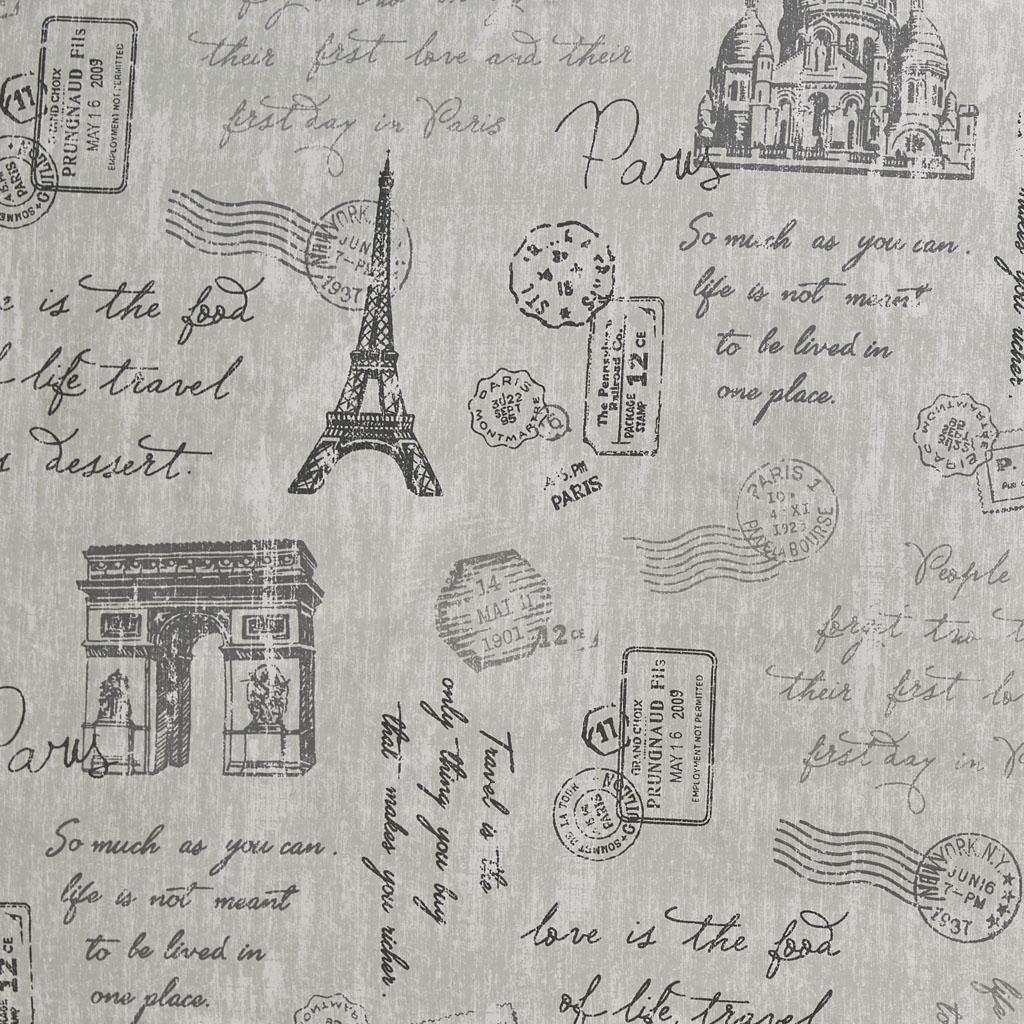 their first love and their
first day in Paris
Paris
GRAND CHOIX
PRUNGNAUD Fils
MAY 16 2009
EMPLOYMENT NOT PERMITTED
11
PARIS
NEW YORK,
JUN
7-PM
1937
So much as you can.
life is not meant
to be lived in
one place.
is the food
life travel
dessert.
The Pennsylvania
Railroad Co.
PACKAGE 12 CE
STAMP
PARIS
30 22
SEPT
95
MONTMARTRE
PM
PARIS
PARIS 1
10
4 XI
1923
BOURSE
14
MAI 11
1901
12 CE
People
forget two
their first lo
first day in P
Paris
Travel is the
only thing you buy
that makes you richer.
11
GRAND CHOIX
PRUNGNAUD Fils
MAY 16 2009
EMPLOYMENT NOT PERMITTED
SOMMET DE LA TOUR
PARIS
NEW YORK, N.Y.
JUN 16
7-PM
1937
So much as you can.
life is not meant
to be lived in
one place.
12 CE
love is the food
of life, travel
life
to